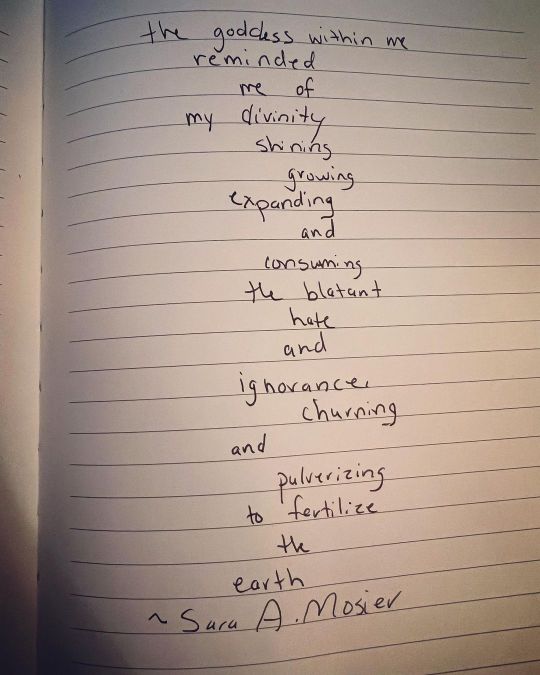 the goddess within me
reminded
me of
my divinity
shining
growing
expanding
and
consuming
the blatant
hate
and
ignorance,
churning
and
pulverizing
to fertilize
the
earth
~ Sara A. Mosier